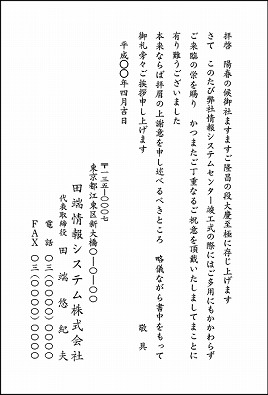 拝啓　陽春の候御社ますますご隆昌の段大慶至極に存じ上げます
さて　このたび弊社情報システムセンター竣工式の際にはご多用にもかかわらず
ご来臨の栄を賜り　かつまたご丁重なるご祝意を頂戴いたしましてまことに
有り難うございました
本来ならば拝眉の上謝意を申し述べるべきところ　略儀ながら書中をもって
御礼旁々ご挨拶申し上げます
敬具
平成〇〇年四月吉日
〒一三五-〇〇〇七
東京都江東区新大橋〇-〇-〇〇
田端情報システム株式会社
代表取締役　田端悠紀夫
電話　〇三(〇〇〇〇)〇〇〇〇
ＦＡＸ　〇三(〇〇〇〇)〇〇〇〇